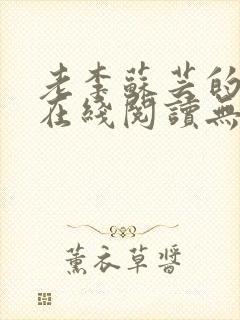 老李蘇芸的
在綫閱讀無
薰衣草醬